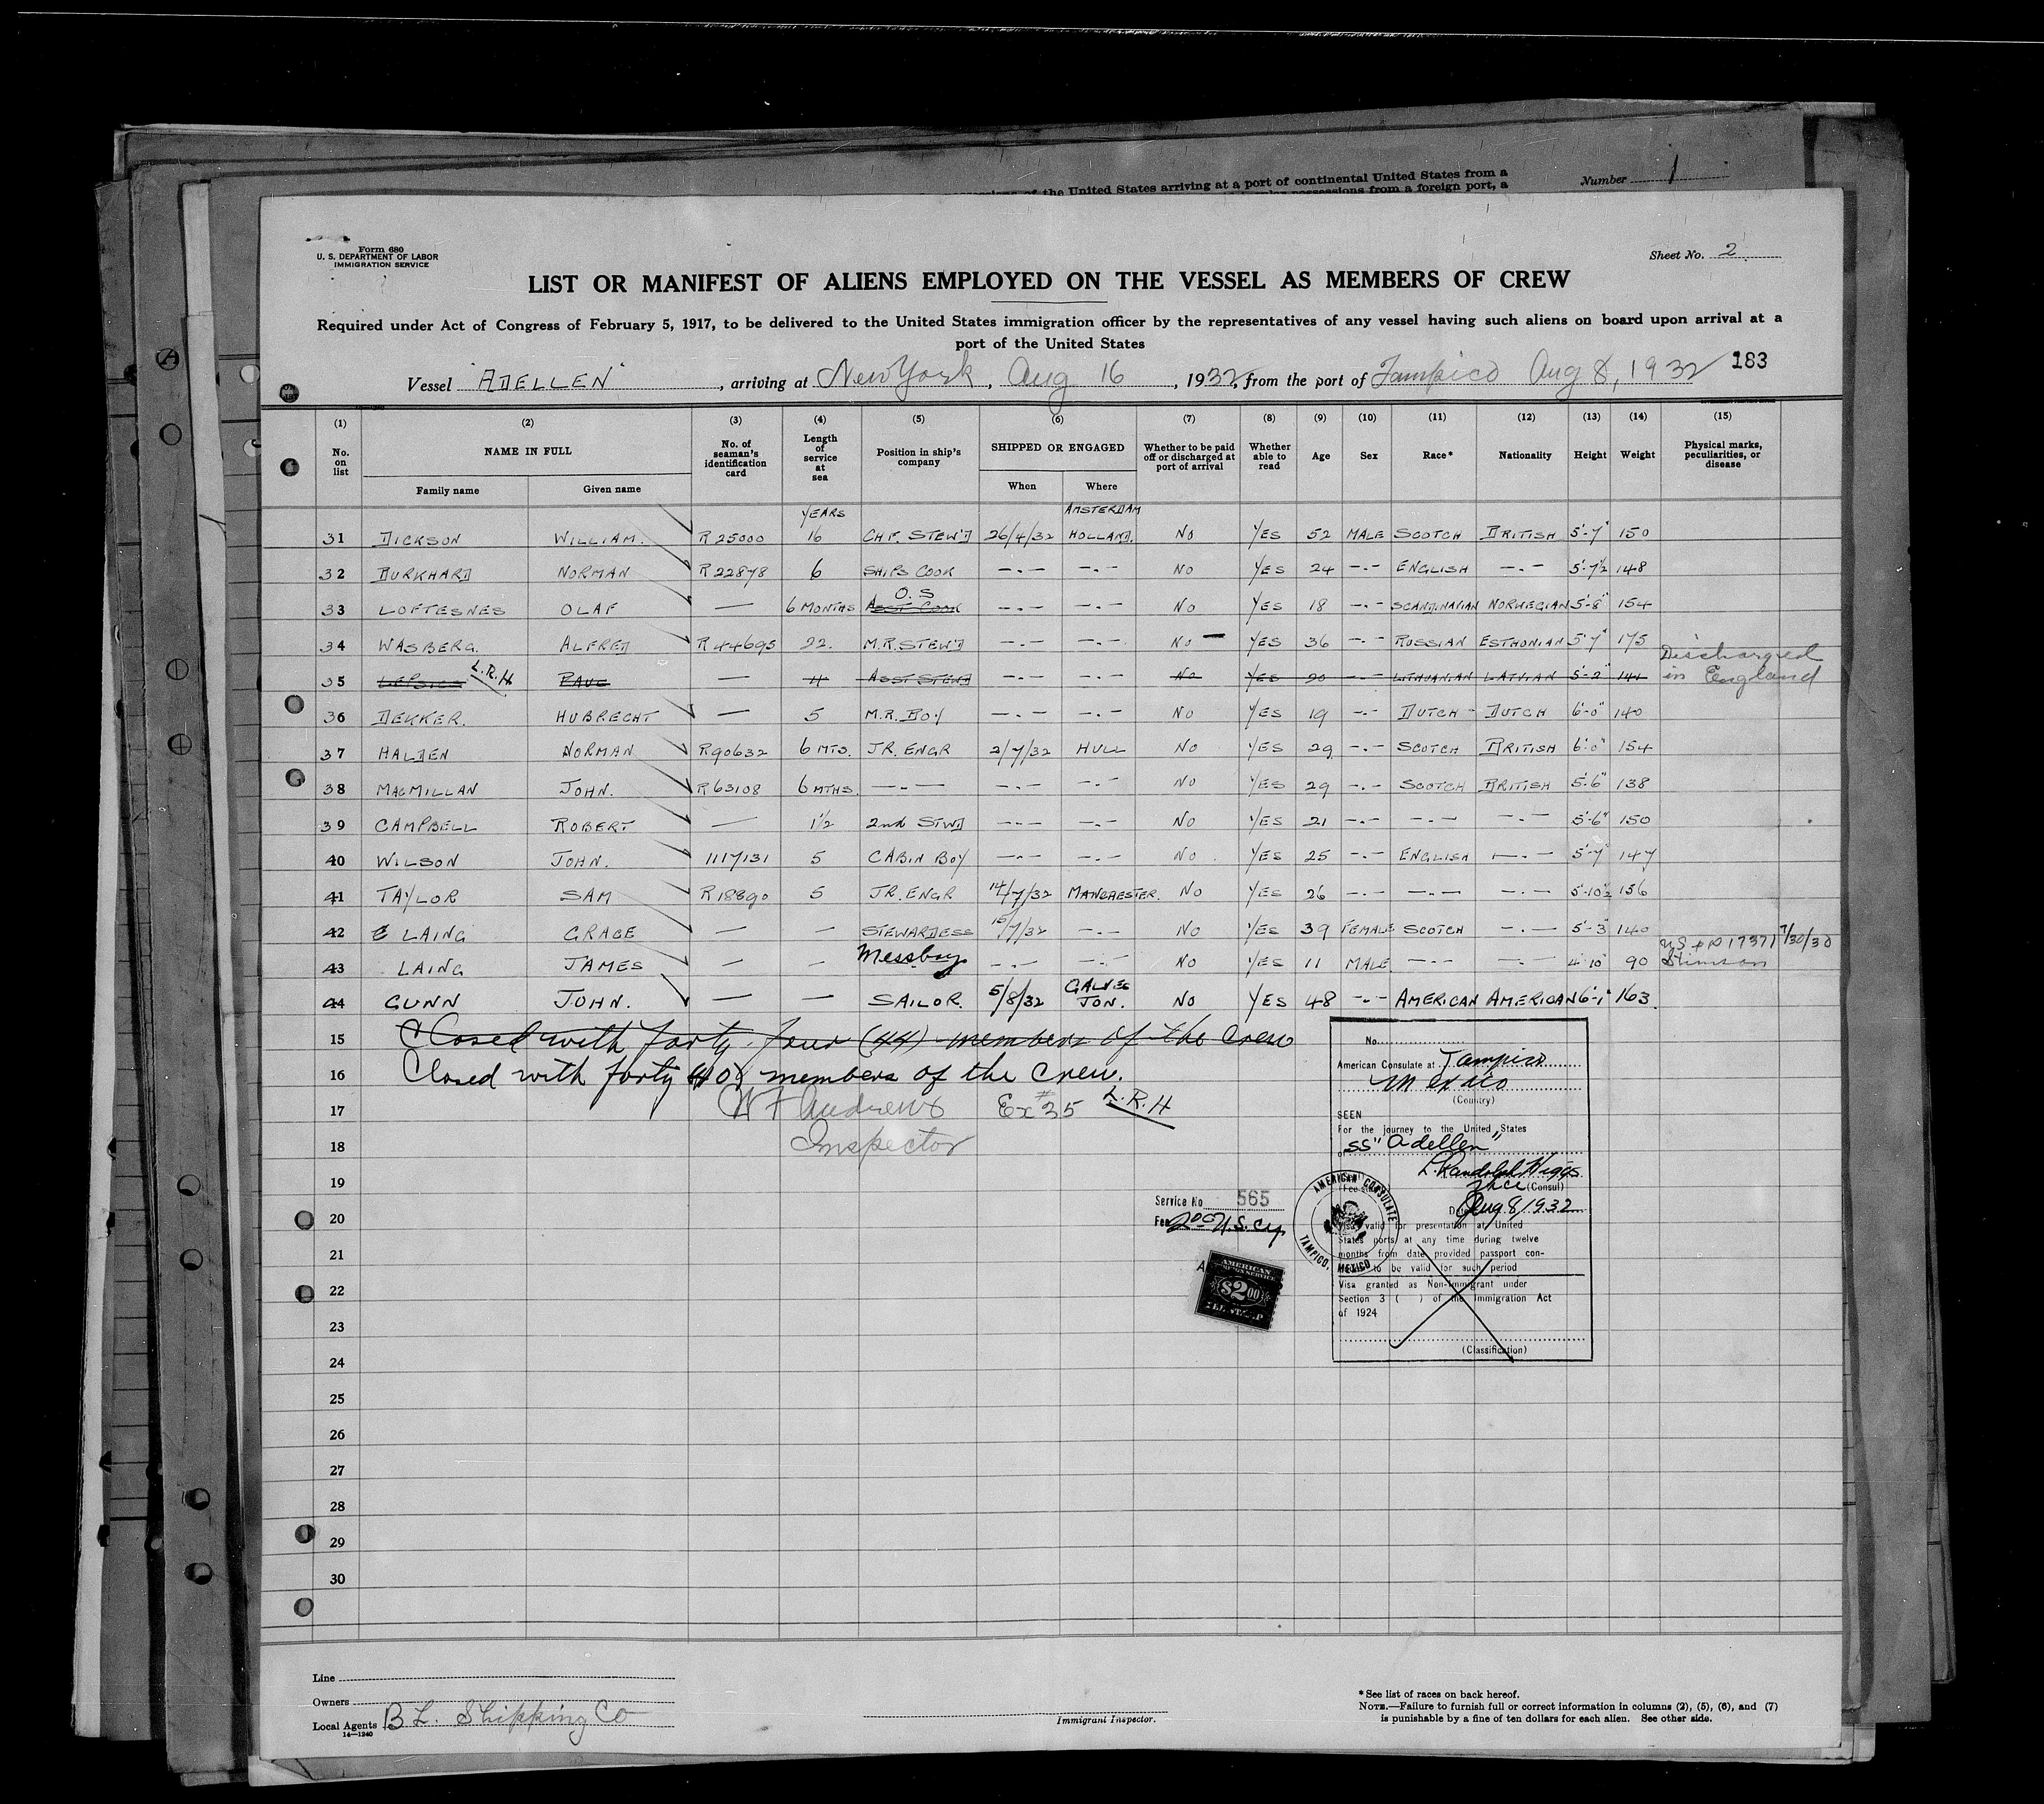 of the United States arriving at a port of continental United States from a
possessions from a foreign port, a
Number 1
Form 680
U. S. DEPARTMENT OF LABOR
IMMIGRATION SERVICE
Sheet No. 2
LIST OR MANIFEST OF ALIENS EMPLOYED ON THE VESSEL AS MEMBERS OF CREW
Required under Act of Congress of February 5, 1917, to be delivered to the United States immigration officer by the representatives of any vessel having such aliens on board upon arrival at a
port of the United States
Vessel "ADELLEN", arriving at New York, Aug 16, 1932, from the port of Tampico Aug 8, 1932 183
(1) (2) (3) (4) (5) (6) (7) (8) (9) (10) (11) (12) (13) (14) (15)
No. on list NAME IN FULL No. of seaman's identification card Length of service at sea Position in ship's company SHIPPED OR ENGAGED Whether to be paid off or discharged at port of arrival Whether able to read Age Sex Race* Nationality Height Weight Physical marks, peculiarities, or disease
Family name Given name When Where
YEARS AMSTERDAM
31 DICKSON WILLIAM. R 25000 16 CHF. STEW'D 26/4/32 HOLLAND. NO YES 52 MALE SCOTCH BRITISH 5'-7" 150
32 BURKHARD NORMAN R 22878 6 SHIPS COOK -.- -.- NO YES 24 -.- ENGLISH -.- 5'-7½ 148
O.S
33 LOFTESNES OLAF — 6 MONTHS ASST COOK -.- -.- NO YES 18 -.- SCANDINAVIAN NORWEGIAN 5'-8" 154
34 WASBERG. ALFRED R 44695 22. M.R. STEW'D -.- -.- NO — YES 36 -.- RUSSIAN ESTHONIAN 5'-7" 175
Discharged
35 L.R.H PAUL — 4 ASST STEWD -.- -.- NO YES 20 -.- LITHUANIAN LATVIAN 5'-2" 144 in England
36 DEKKER. HUBRECHT — 5 M.R. BOY -.- -.- NO YES 19 -.- DUTCH - DUTCH 6'-0" 140
37 HALDEN NORMAN R90632 6 MTS. JR. ENGR 2/7/32 HULL NO YES 29 -.- SCOTCH BRITISH 6'-0" 154
38 MACMILLAN JOHN. R 63108 6 MTHS. -.- -.- -.- NO YES 29 -.- SCOTCH BRITISH 5'-6" 138
39 CAMPBELL ROBERT — 1½ 2nd STWD -.- -.- NO YES 21 -.- -.- -.- 5'-6" 150
40 WILSON JOHN. 1117131 5 CABIN BOY -.- -.- NO YES 25 -.- ENGLISH -.- 5'-7" 147
41 TAYLOR SAM R18890 5 JR. ENGR 14/7/32 MANCHESTER. NO YES 26 -.- -.- -.- 5'-10½ 156
42 LAING GRACE — — STEWARDESS 15/7/32 -.- NO YES 39 FEMALE SCOTCH -.- 5'-3" 140
17371 7/30/30
43 LAING JAMES — — Messboy -.- -.- NO YES 11 MALE -.- -.- 4'-10" 90 Stimson
GALVES
44 GUNN JOHN. — — SAILOR. 5/8/32 TON. NO YES 48 -.- AMERICAN AMERICAN 6'-1" 163.
15 Closed with forty four (44) members of the crew
16 Closed with forty members of the crew.
17 W F Andrews Ex #35 L.R.H
18 Inspector
19
20
21
22
23
24
25
26
27
28
29
30
No.
American Consulate at Tampico
Mexico
(Country)
SEEN
For the journey to the United States
SS "Adellen"
L. Randolph Higgs
Vice (Consul)
Aug. 8/1932
Visa valid for presentation at United
States ports at any time during twelve
months from date provided passport con-
to be valid for such period
Visa granted as Non-Immigrant under
Section 3 ( ) of the Immigration Act
of 1924
(Classification)
Service No. 565
Fee 2.00 U.S. Cy
AMERICAN CONSULATE
TAMPICO, MEXICO
AMERICAN
FOREIGN SERVICE
$2.00
FEE STAMP
Line
Owners
Local Agents B L. Shipping Co
14—1240
Immigrant Inspector.
*See list of races on back hereof.
NOTE.—Failure to furnish full or correct information in columns (2), (5), (6), and (7)
is punishable by a fine of ten dollars for each alien. See other side.